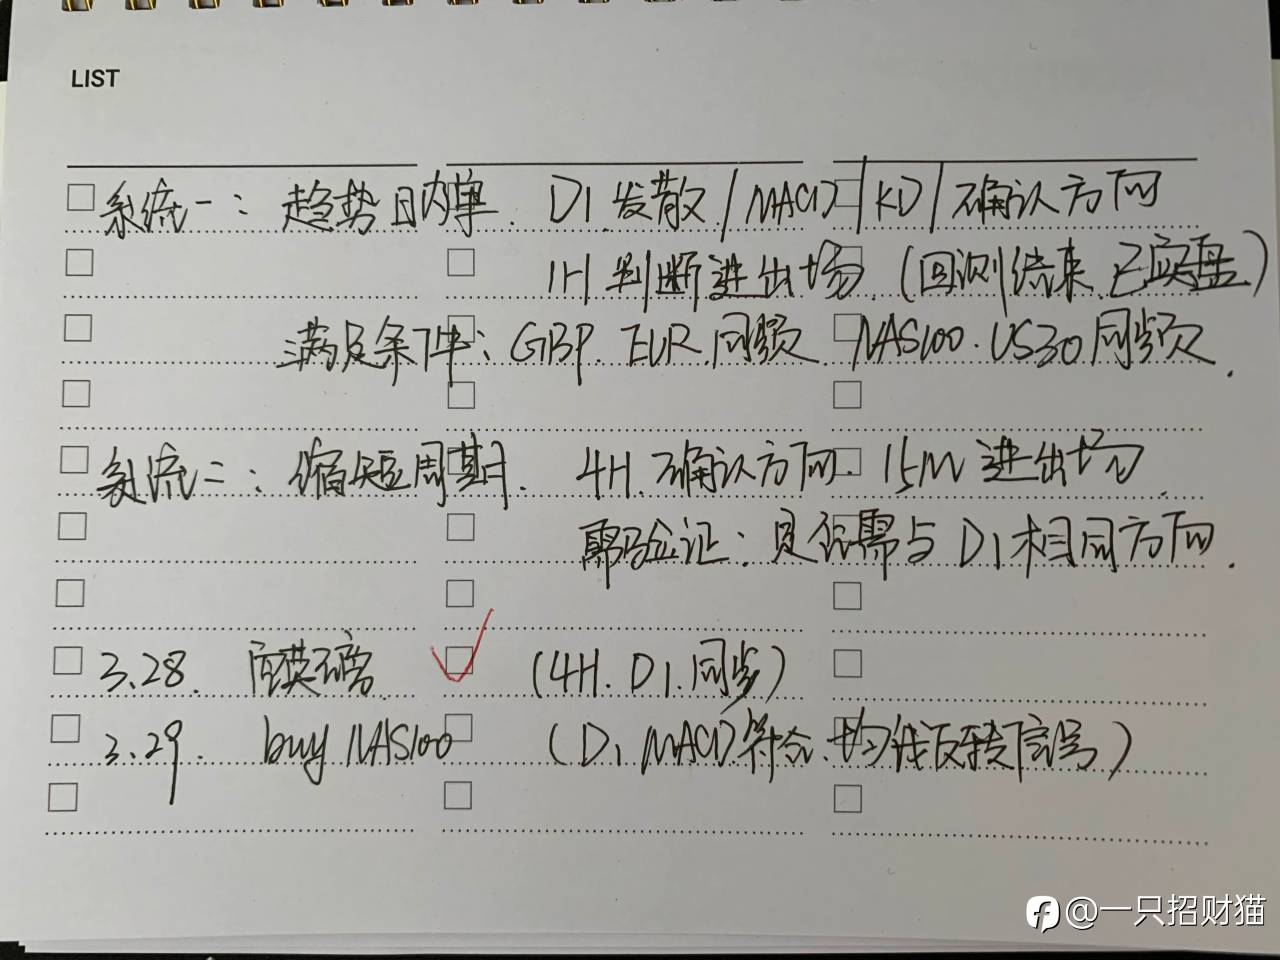 LIST
系统一：趋势日内单. D1发散/MACD/KD/确认方向
1H判断进出场.(回测结束.已实盘.)
满足条件：GBP.EUR.同频 NAS100.US30同频.
系统二：缩短周期. 4H.确认方向. 15M进出场.
需验证：是否需与D1相同方向.
3.28. (4H.D1.同步)
3.29. buy NAS100 (D1.MACD符合.均线反转信号)
@一只招财猫